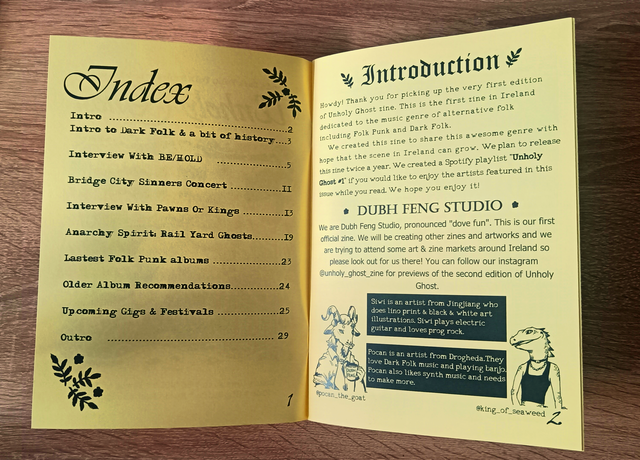 Index
Intro ........................................2
Intro to Dark Folk & a bit of history....3
Interview With BE/HOLD ................5
Bridge City Sinners Concert ............11
Interview With Pawns Or Kings ........13
Anarchy Spirit: Rail Yard Ghosts........19
Lastest Folk Punk albums ...............23
Older Album Recommendations............24
Upcoming Gigs & Festivals ..............25
Outro ......................................29
1
Introduction
Howdy! Thank you for picking up the very first edition
of Unholy Ghost zine. This is the first zine in Ireland
dedicated to the music genre of alternative folk
including Folk Punk and Dark Folk.
We created this zine to share this awesome genre with
hope that the scene in Ireland can grow. We plan to release
this zine twice a year. We created a Spotify playlist "Unholy
Ghost #1" if you would like to enjoy the artists featured in this
issue while you read. We hope you enjoy it!
DUBH FENG STUDIO
We are Dubh Feng Studio, pronounced "dove fun". This is our first
official zine. We will be creating other zines and artworks and we
are trying to attend some art & zine markets around Ireland so
please look out for us there! You can follow our instagram
@unholy_ghost_zine for previews of the second edition of Unholy
Ghost.
Siwi is an artist from Jingjiang who
does lino print & black & white art
illustrations. Siwi plays electric
guitar and loves prog rock.
Pocan is an artist from Drogheda.They
love Dark Folk music and playing banjo.
Pocan also likes synth music and needs
to make more.
@pocan_the_goat
@king_of_seaweed
2